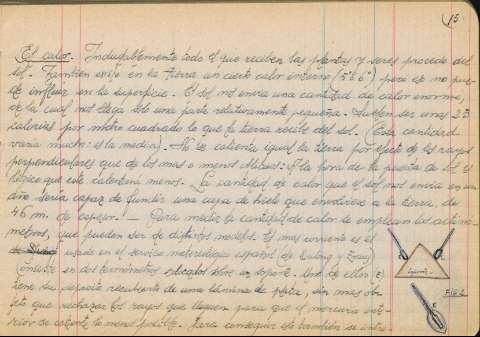 15
El calor. Indudablemente todo el que reciben las plantas y seres procede del
sol. Tambien existe en la tierra un cierto calor interno (5 ó 6°) pero es no pue-
de influir en la superficie. El sol nos envia una cantidad de calor enorme,
de la cual nos llega solo una parte relativamente pequeña. Suelen ser unas 23
calorias por metro cuadrado lo que la tierra recibe del sol. (Esta cantidad
varia mucho: es la media). No se calienta igual la tierra por efecto de los rayos
perpendiculares que de los mas o menos oblicuos: A la hora de la puesta de sol es
lógico que este calentará menos. La cantidad de calor que el sol nos envia en un
año seria capaz de fundir una capa de hielo que envolviere a la tierra, de
46 m. de espesor! — Para medir la cantidad de calor se emplean los actinó-
metros, que pueden ser de distintos modelos. El mas corriente es el
usado en el servicio meteorólogo español de
Consiste en dos termómetros sobre un soporte. Uno de ellos
tiene su deposito recubierto de una lámina de plata, sin mas ob-
jeto que rechazar los rayos que lleguen para que el mercurio inte-
rior se caliente lo menos posible. Para conseguir esto tambien se intro-
Fig 2